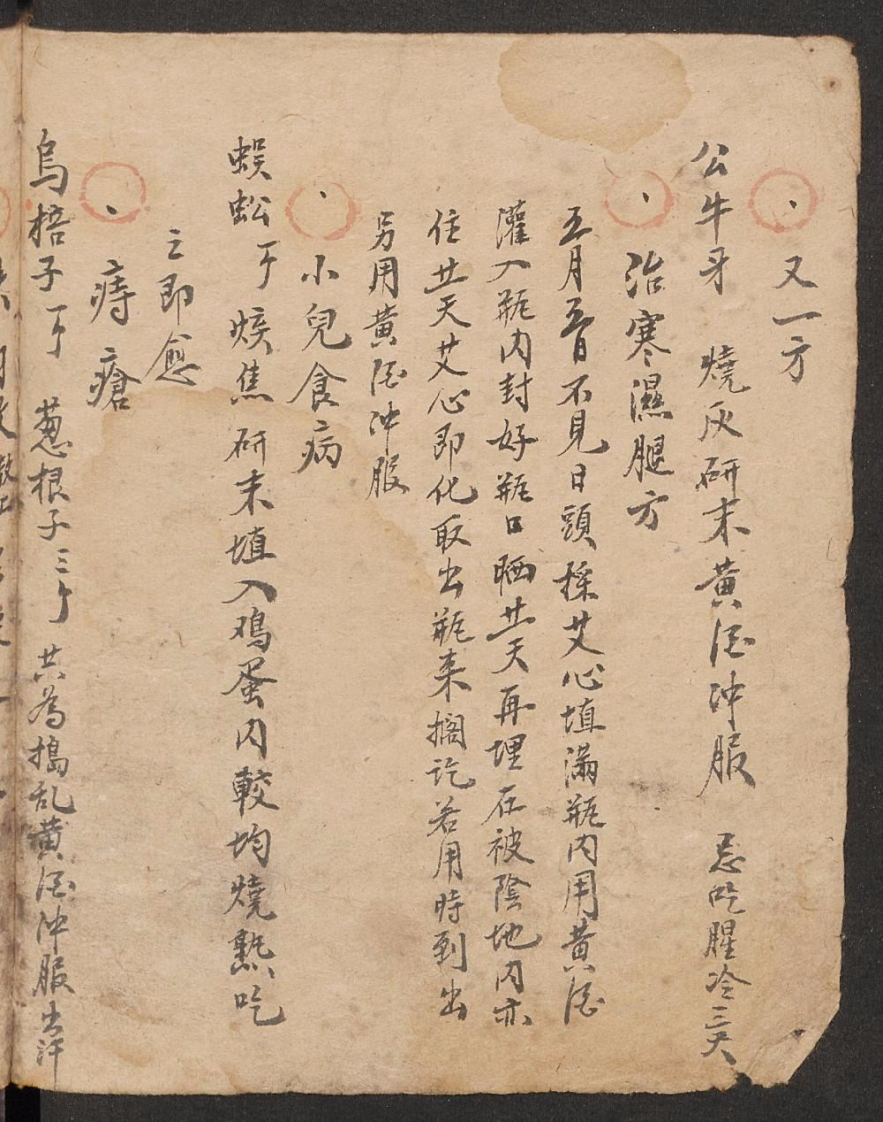 、又一方
公牛牙　燒灰研末黃酒冲服　忌吃腥冷三天
、治寒濕腿方
五月五日不見日頭採艾心埴滿瓶内用黃酒
灌入瓶内封好瓶口晒廿天再埋在被陰地内亦
住廿天艾心即化取出瓶来擱訖若用時到出
另用黃酒冲服
、小兒食病
蜈蚣一个　焙焦研末埴入鸡蛋内較均燒熟吃
立即愈
、痔瘡
烏棓子一个　葱根子三个　共為搗乱黃酒冲服出汗